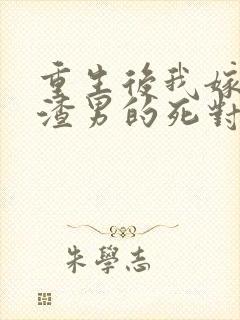 重生後我嫁
渣男的死對
朱學志